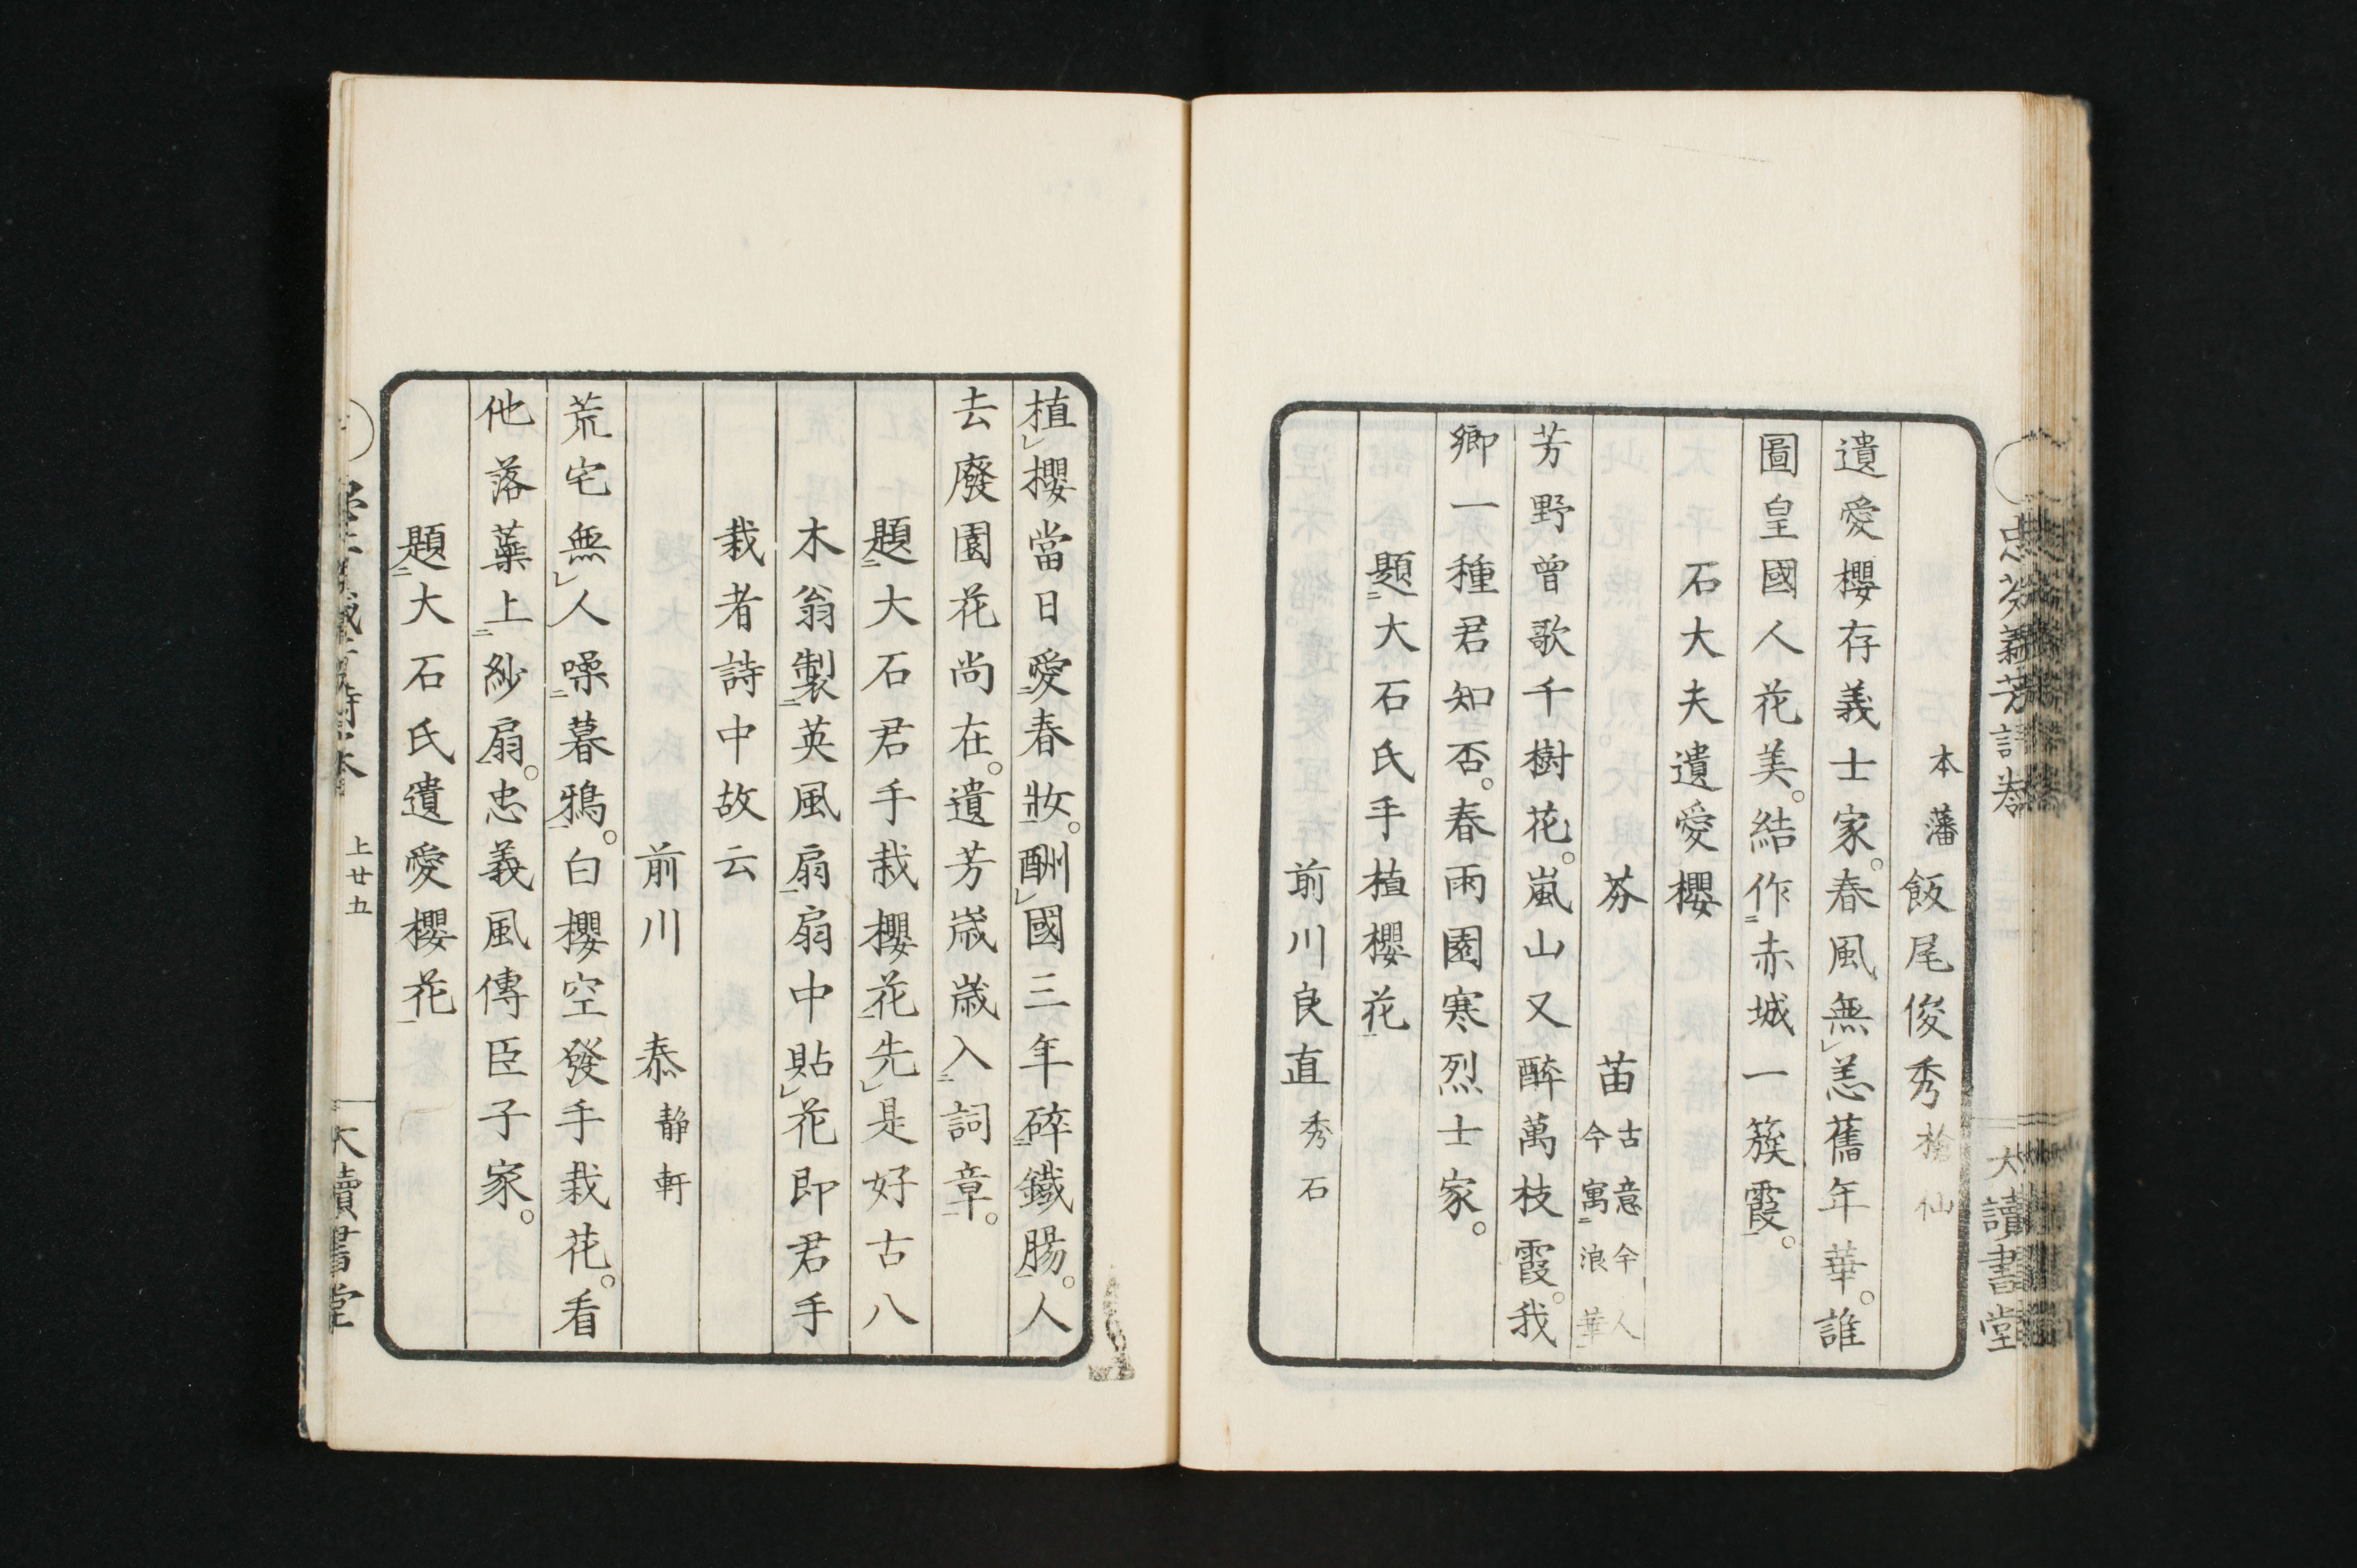 忠芬義芳詩卷
大讀書堂
本藩飯尾俊秀槍仙
遺愛櫻存義士家。春風無恙舊年華。誰
圖皇國人花美。結作赤城一簇霞。
石大夫遺愛櫻
芬 苗古意今人今寓浪華
芳野曾歌千樹花。嵐山又醉萬枝霞。我
卿一種君知否。春雨園寒烈士家。
題大石氏手植櫻花
前川良直秀石
植櫻當日愛春妝。酬國三年碎鐵腸。人
去廢園花尚在。遺芳歲歲入詞章。
題大石君手栽櫻花先是好古八
木翁製英風扇扇中貼花即君手
栽者詩中故云
前川 泰靜軒
荒宅無人噪暮鴉。白櫻空發手栽花。看
他落蘂上紗扇。忠義風傳臣子家。
題大石氏遺愛櫻花
上廿五
大讀書堂